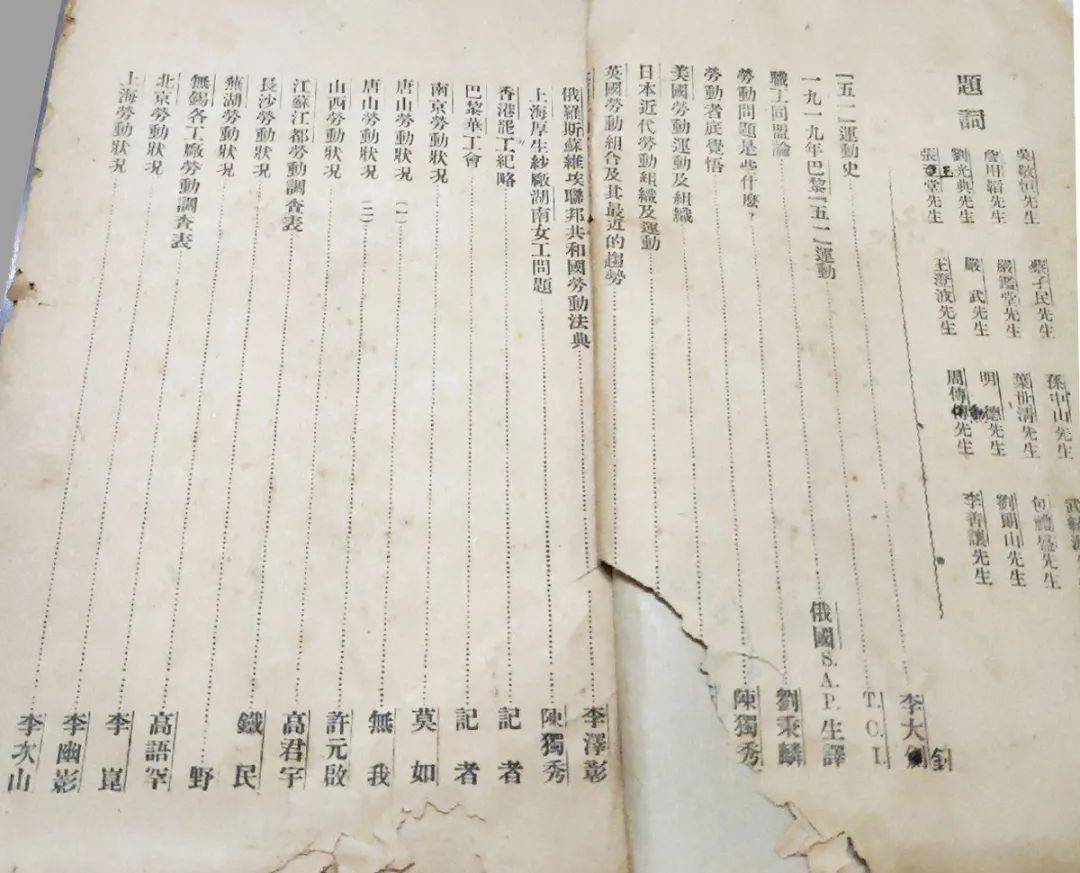 題詞
吳敬恒先生 蔡孑民先生 孫中山先生
嚴鑑堂先生
劉光典先生 嚴武先生 明德先生 劉朗山先生
張玉堂先生 王澄波先生 李善讓先生
「五一」運動史 李大釗
一九一九年巴黎「五一」運動 T.C.I.
職工同盟論 俄國S.A.P.生譯
勞動問題是些什麼? 劉秉麟
勞動者底覺悟 陳獨秀
美國勞動運動及組織
日本近代勞動組織及運動
英國勞動組合及其最近的趨勢
俄羅斯蘇維埃聯邦共和國勞動法典 李澤彰
上海厚生紗廠湖南女工問題 陳獨秀
香港罷工紀略 記者
巴黎華工會 記者
南京勞動狀況 莫如
唐山勞動狀況(一) 無我
唐山勞動狀況(二) 許元啟
山西勞動狀況 高君宇
江蘇江都勞動調查表 鐵民
長沙勞動狀況 野
蕪湖勞動狀況 高語罕
無錫各工廠勞動調查表 李崑
北京勞動狀況 李幽影
上海勞動狀況 李次山